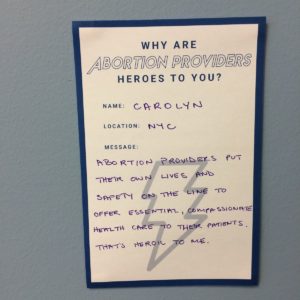 WHY ARE
ABORTION PROVIDERS
HEROES TO YOU?
NAME: CAROLYN
LOCATION: NYC
MESSAGE:
ABORTION PROVIDERS PUT
THEIR OWN LIVES AND
SAFETY ON THE LINE TO
OFFER ESSENTIAL, COMPASSIONATE
HEALTH CARE TO THEIR PATIENTS.
THAT'S HEROIC TO ME.